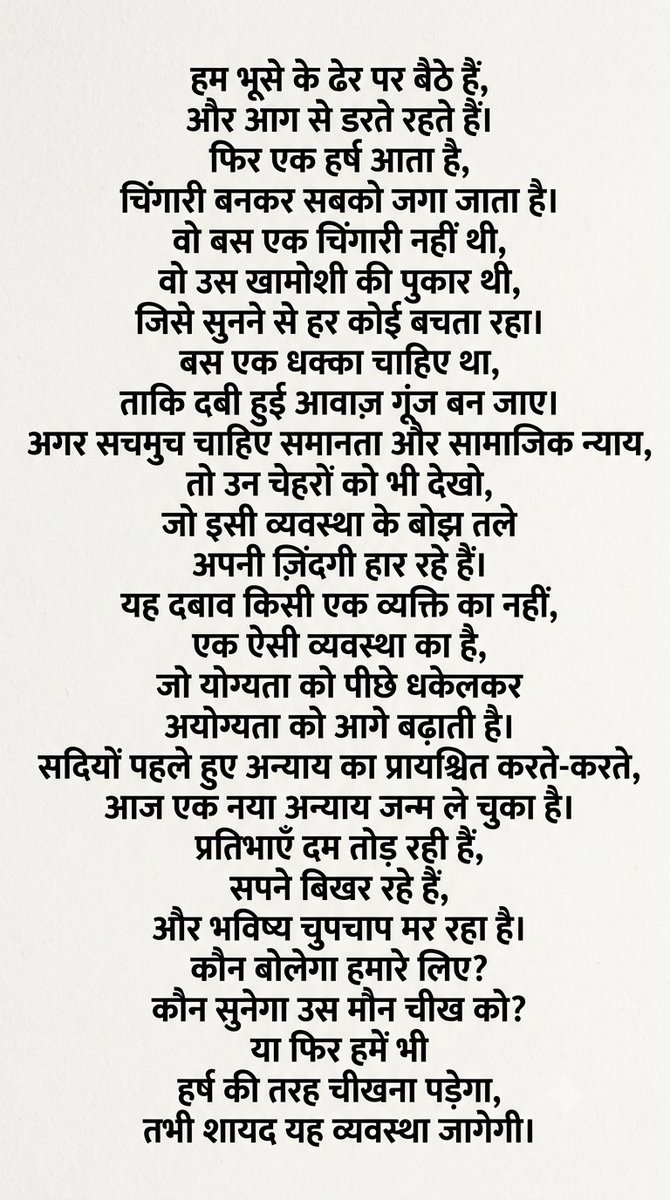 हम भूसे के ढेर पर बैठे हैं,
और आग से डरते रहते हैं।
फिर एक हर्ष आता है,
चिंगारी बनकर सबको जगा जाता है।
वो बस एक चिंगारी नहीं थी,
वो उस खामोशी की पुकार थी,
जिसे सुनने से हर कोई बचता रहा।
बस एक धक्का चाहिए था,
ताकि दबी हुई आवाज़ गूंज बन जाए।
अगर सचमुच चाहिए समानता और सामाजिक न्याय,
तो उन चेहरों को भी देखो,
जो इसी व्यवस्था के बोझ तले
अपनी ज़िंदगी हार रहे हैं।
यह दबाव किसी एक व्यक्ति का नहीं,
एक ऐसी व्यवस्था का है,
जो योग्यता को पीछे धकेलकर
अयोग्यता को आगे बढ़ाती है।
सदियों पहले हुए अन्याय का प्रायश्चित करते-करते,
आज एक नया अन्याय जन्म ले चुका है।
प्रतिभाएँ दम तोड़ रही हैं,
सपने बिखर रहे हैं,
और भविष्य चुपचाप मर रहा है।
कौन बोलेगा हमारे लिए?
कौन सुनेगा उस मौन चीख को?
या फिर हमें भी
हर्ष की तरह चीखना पड़ेगा,
तभी शायद यह व्यवस्था जागेगी।